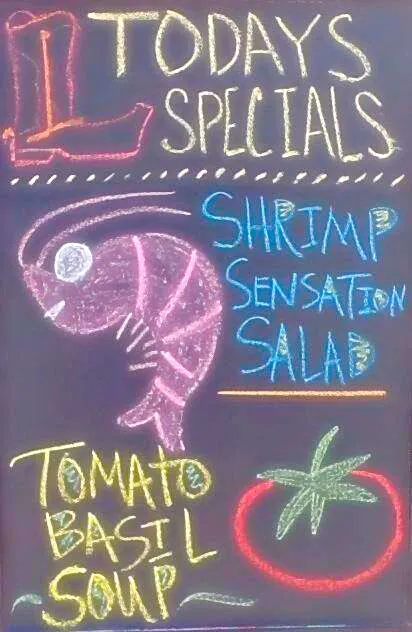 TODAYS
SPECIALS
SHRIMP
SENSATION
SALAD
TOMATO
BASIL
SOUP